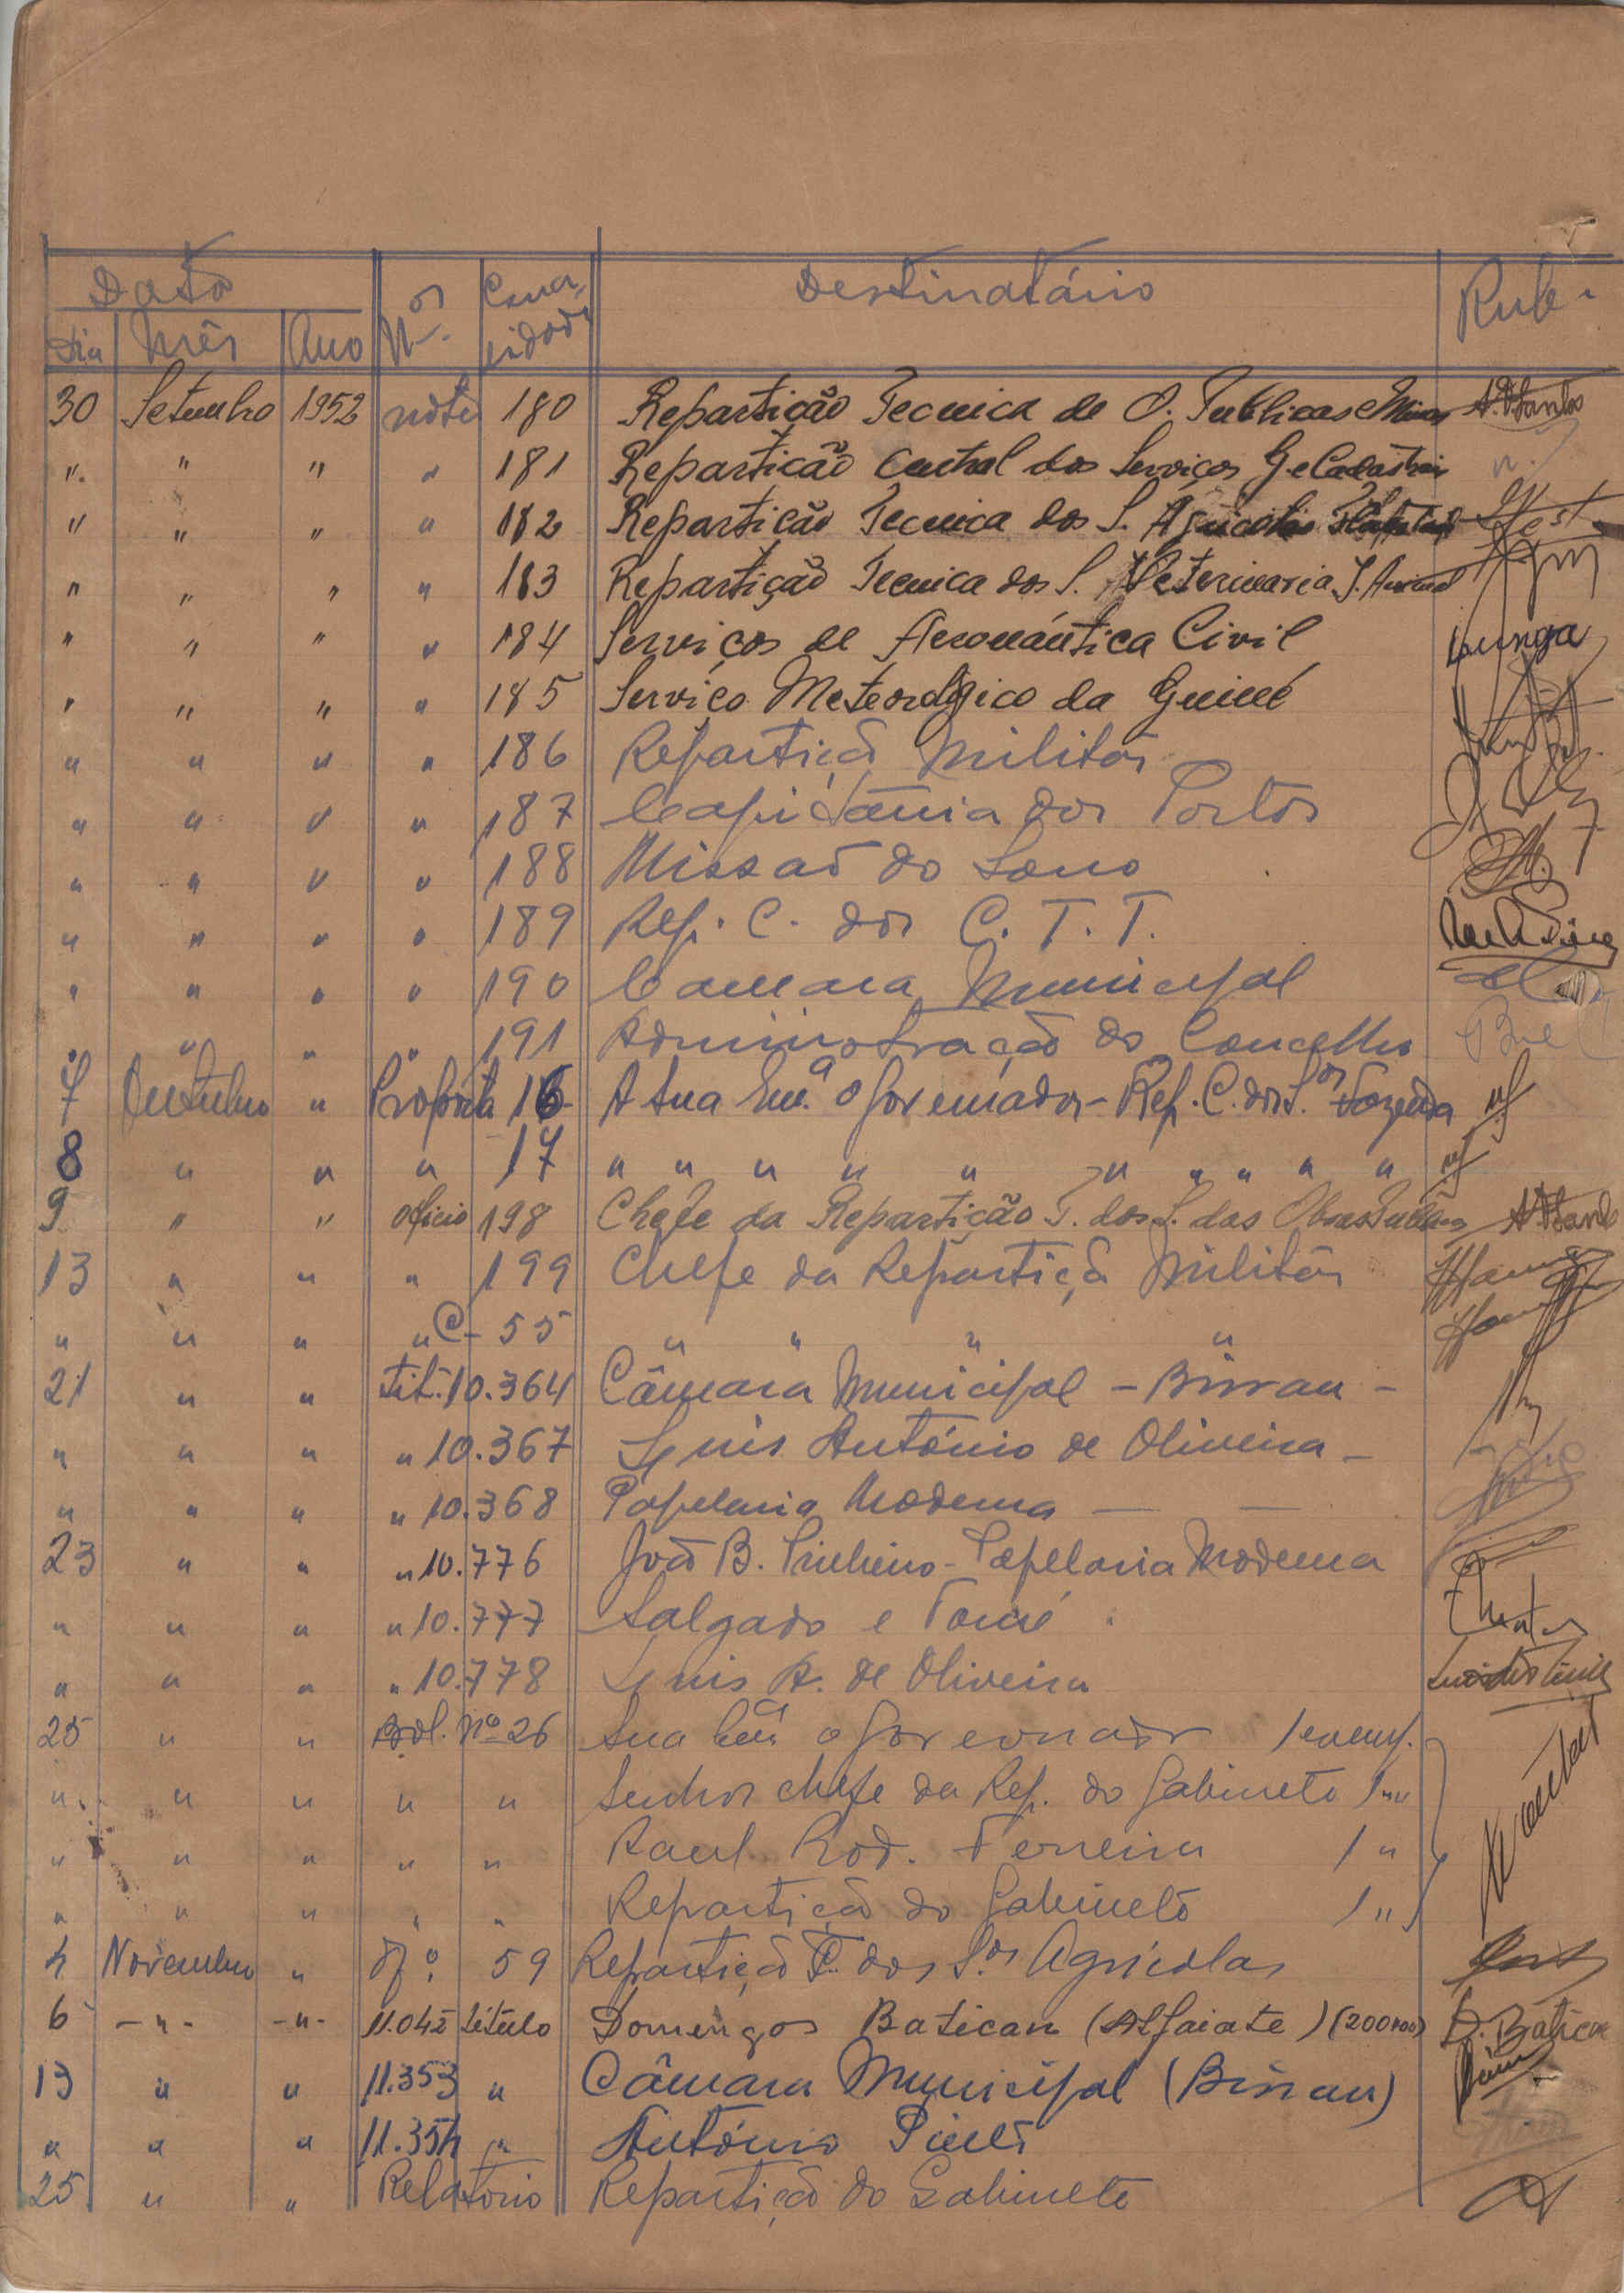 Data Nos Destinatário Rub.
Dia Mês Ano
30 Setembro 1952 nota 180 Repartição Tecnica de O. Publicas e Minas A. D. Santos
" " " " 181 Repartição Central dos Serviços G. e Cadastrais "
" " " " 182 Repartição Tecnica dos S. Agricolas
" " " " 183 Repartição Tecnica dos S. Veterinaria I. Animal
" " " " 184 Serviços de Aeronáutica Civil
" " " " 185 Serviço Meteorológico da Guiné
" " " " 186 Repartição Militar
" " " " 187 Capitania dos Portos
" " " " 188 Missão do Sono
" " " " 189 Rep. C. dos C. T. T.
" " " " 190 Camara Municipal
" " " " 191 Administração do Concelho
7 Outubro " Proposta 16 A Sua Exª o Governador - Rep. C. dos S.os Fazenda
8 " " " 17 " " " " " " " " " "
9 " " oficio 198 Chefe da Repartição T. dos S. das Obras Publicas A. D. Santos
13 " " " 199 Chefe da Repartição Militar
" " " " C- 55 " " " "
21 " " Tit. 10.364 Câmara Municipal - Bissau -
" " " " 10.367 Luis António de Oliveira -
" " " " 10.368 Papelaria Moderna —
23 " " " 10.776 João B. Pinheiro - Papelaria Moderna
" " " " 10.777 Salgado e Tomé
" " " " 10.778 Luis A. de Oliveira
25 " " Bol. Nº 26 Sua Exª o Governador 1 exemp.
" " " " " Senhor Chefe da Rep. do Gabinete 1 " "
" " " " " Raul Rod. Ferreira 1 "
" " " " " Repartição do Gabinete 1 "
4 Novembro " Ofº 59 Repartição T. dos S.os Agrícolas
6 -"- -"- 11.042 título Domingos Batican (Alfaiate) (200$00) D. Batican
13 " " 11.353 " Câmara Municipal (Bissau)
" " " 11.354 " António Pinto
25 " " Relatório Repartição do Gabinete